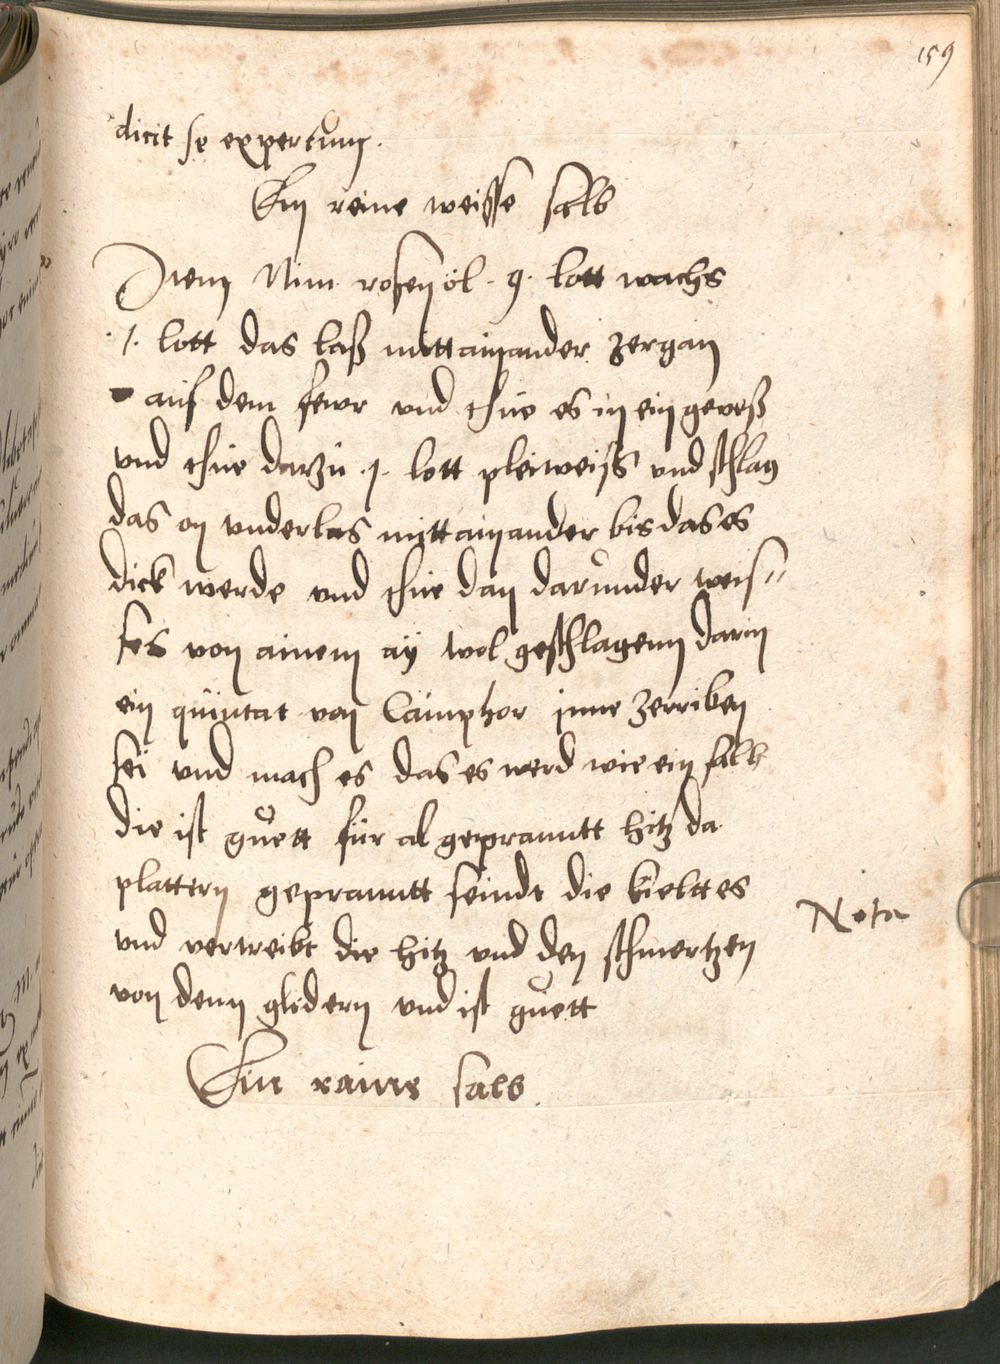 159
dicit se expertum.
Ein reine weisse salb
Item Nim rosenöl . 9 . lott wachs
. 1 . lott das laß mittainander zergan
auf dem fewr vnd thue es in ein geveß
vnd thue darzu . 1 . lott pleiweiss vnd schlag
das on vnderlas mittainander bis das es
dick werde vnd thue dan darunder weis"
ses von ainem ay wol geschlagenn darin
ein quintat von Camphor inne zerriben
sei vnd mach es das es werd wie ein salb
die ist guett für al geprauntt hitz da
plattern geprauntt seindt die kielt es
Nota
vnd vertreibt die hitz vnd den schmertzen
von denn glidern vnd ist guett
Ein raine salb